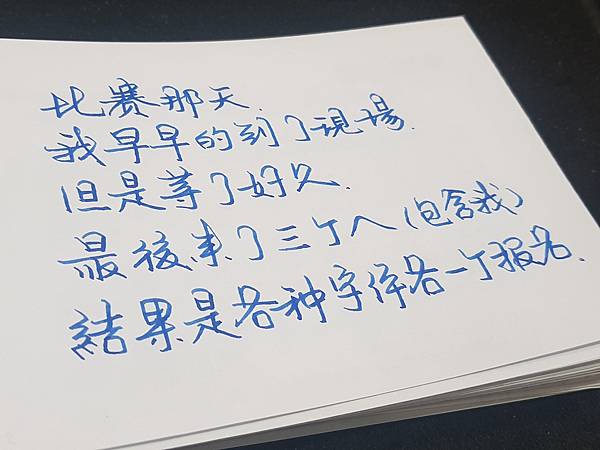 比賽那天.
我早早的到了現場.
但是等了好久.
最後來了三个人(包含我)
結果是各种字体各一个报名.